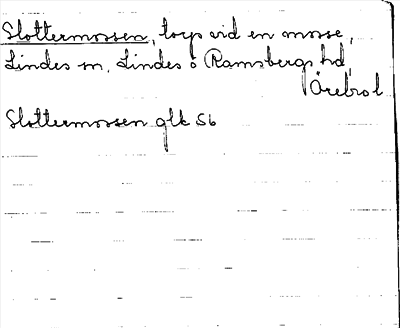 Slottermossen, torp vid en mosse,
Lindes sn, Lindes o Ramsbergs hd,
Örebro l
Slottermossen glk 56